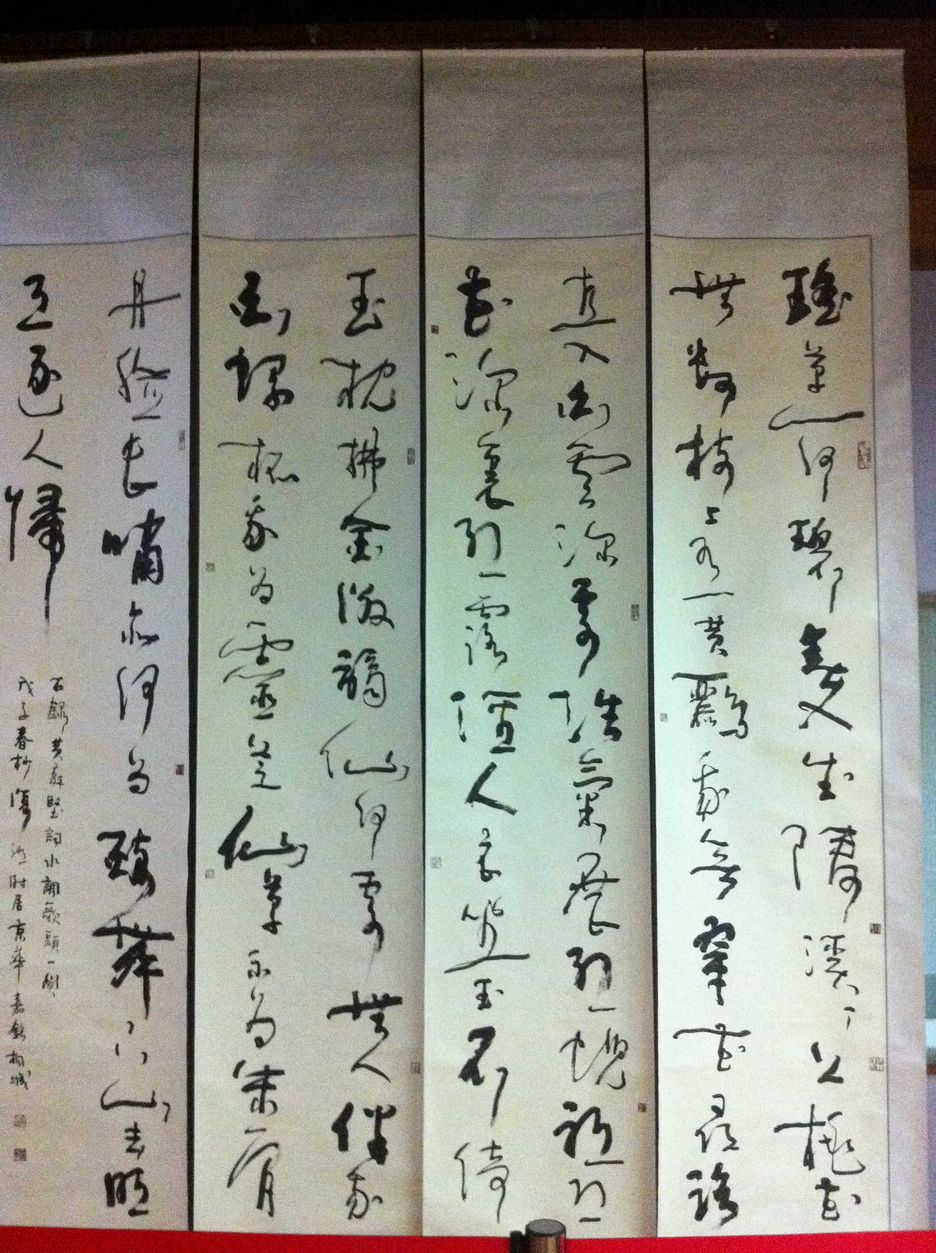 瑤草一何碧春入武陵溪〻上桃花
無數枝上有黃鸝我欲穿花尋路
直入白雲深處浩氣展虹霓祇恐
花深裏紅露濕人衣坐玉石倚
玉枕拂金徽謫仙何處無人伴我
白螺杯我為靈芝仙草不為朱唇
丹臉長嘯亦何為醉舞下山去明
月逐人歸
右錄黃庭堅詞水調歌頭一闋
戊子春抄時居京華嘉